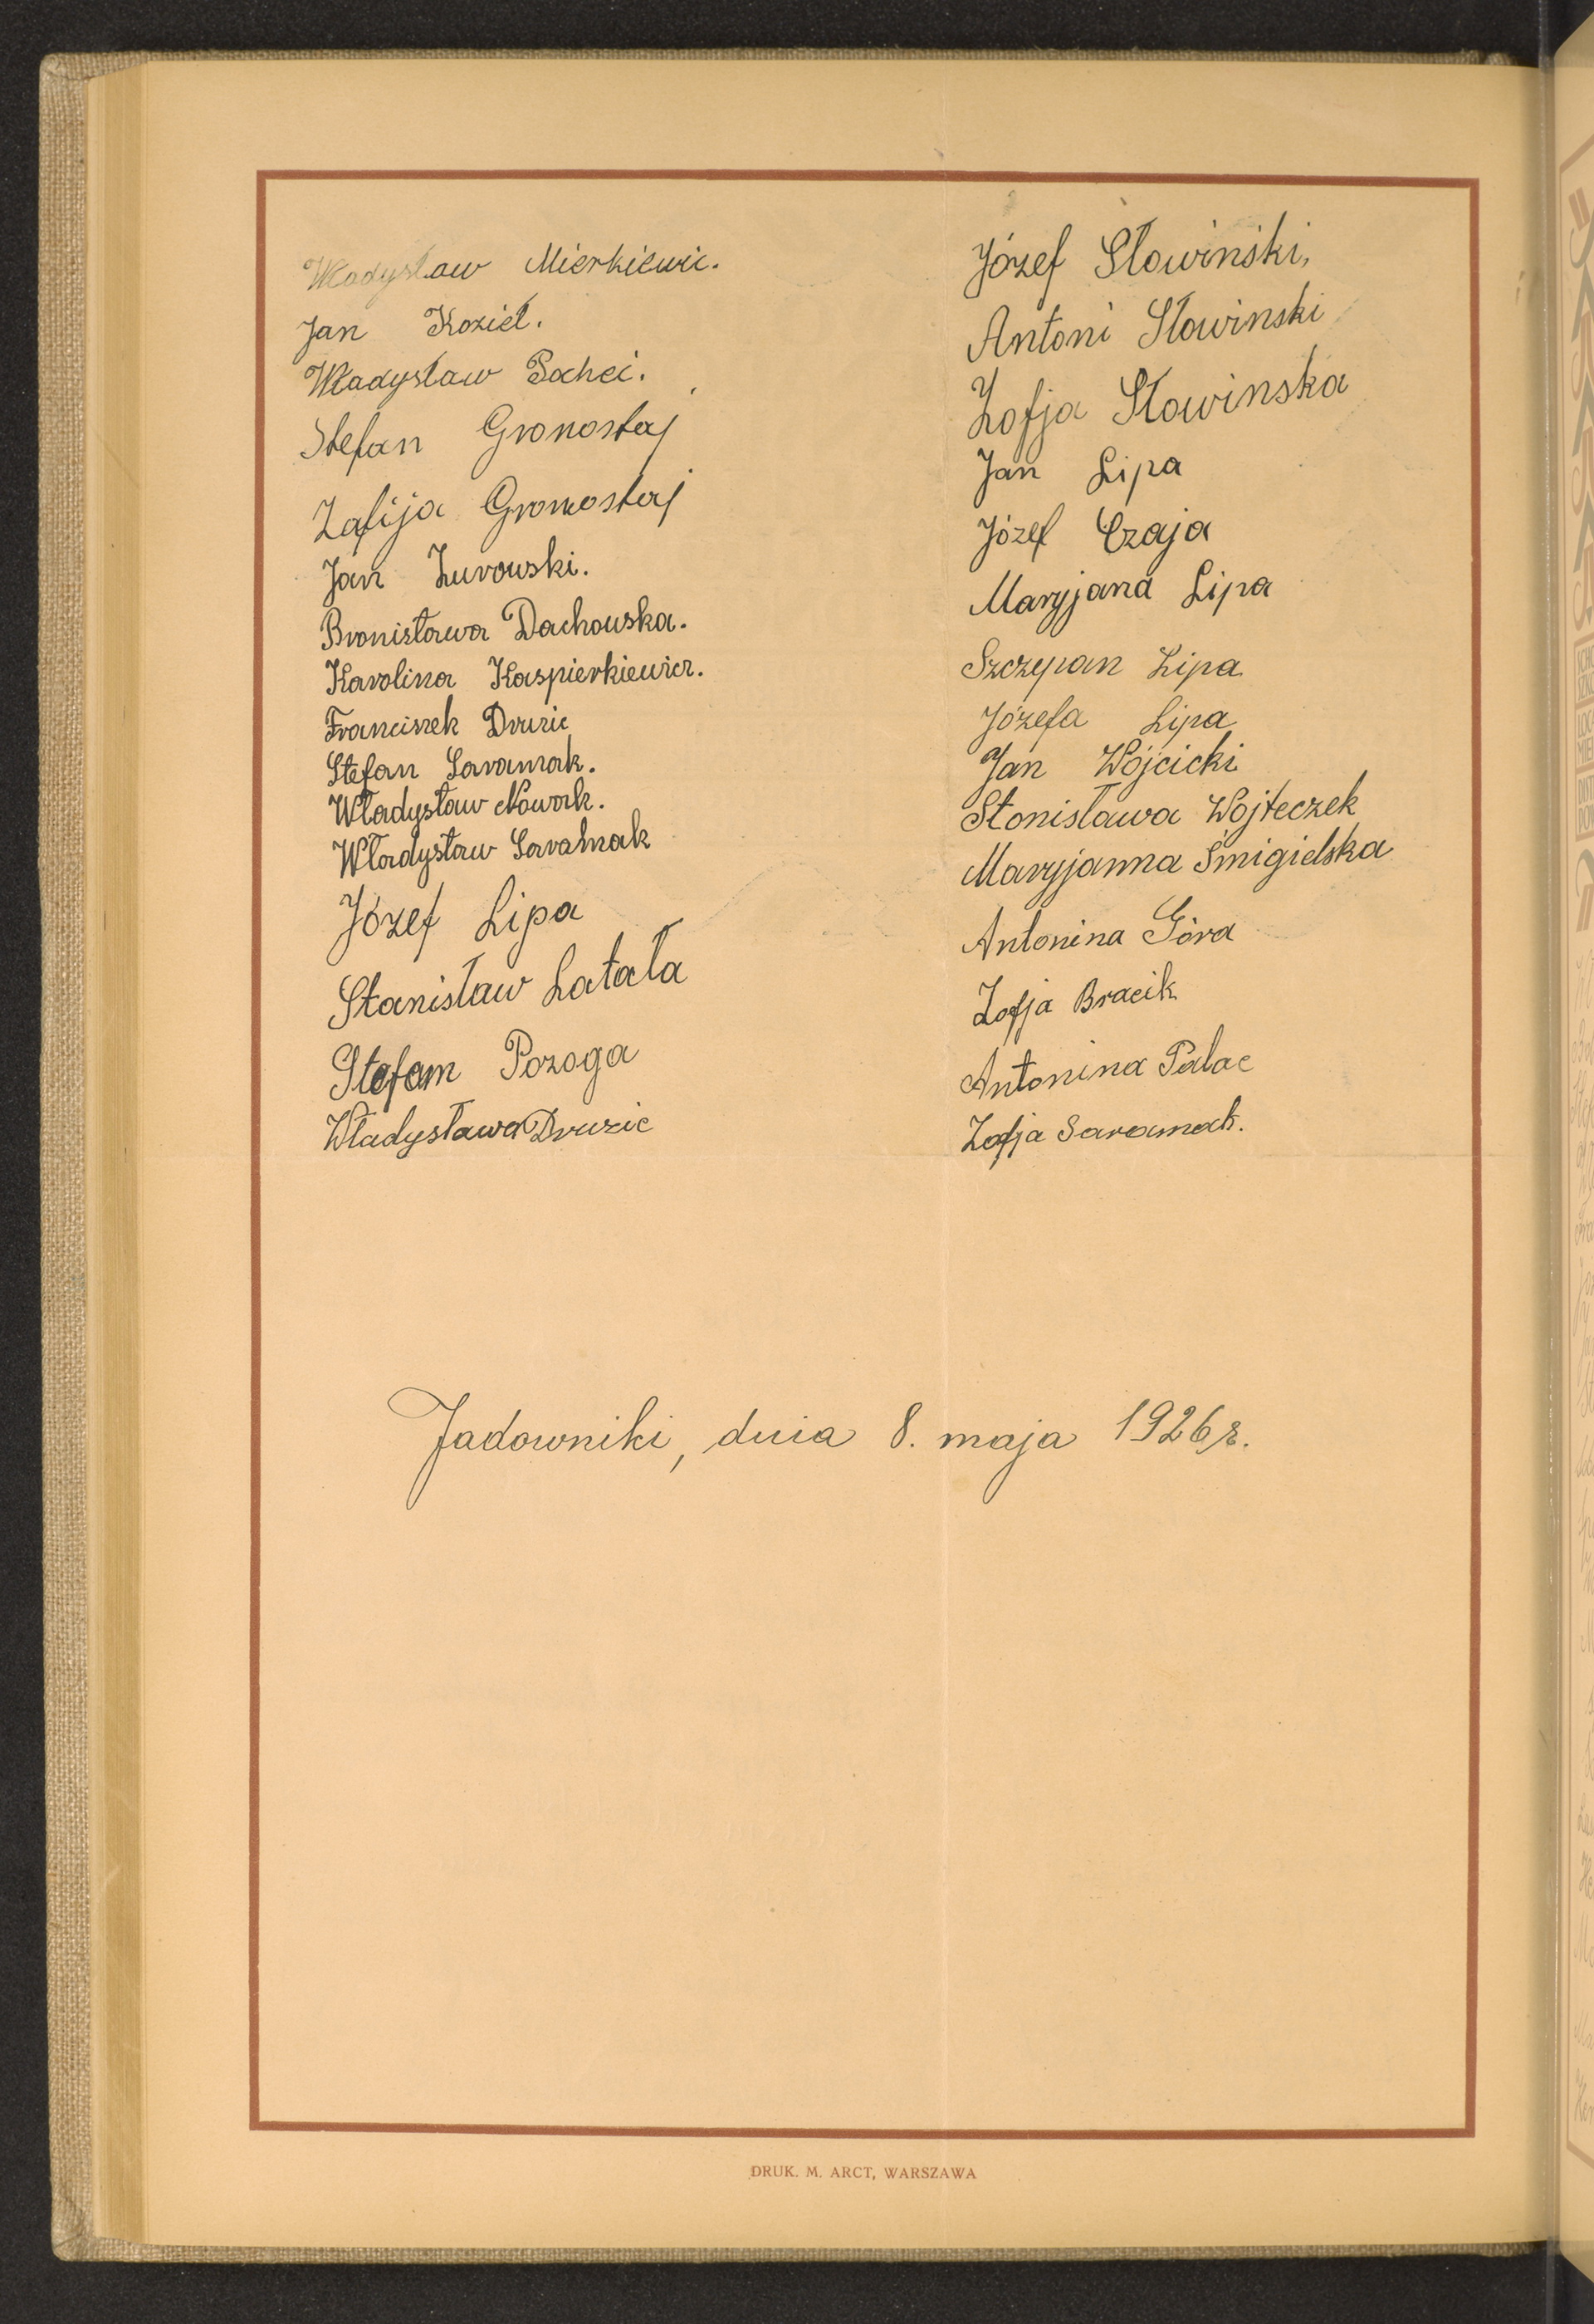 Władysław Mierkiewic.
Jan Kozieł.
Władysław Pachci.
Stefan Gronostaj
Zafija Gronostaj
Jan Żurowski.
Bronisława Dachowska.
Karolina Kaspierkiewicz.
Franciszek Druzic
Stefan Saramak.
Władysław Nowak.
Władysław Saramak
Józef Lipa
Stanisław Latała
Stefam Pozoga
Władysława Druzic
Józef Słowiński,
Antoni Słowinski
Zofja Słowinska
Jan Lipa
Józef Czaja
Maryjana Lipa
Szczepan Lipa
Józefa Lipa
Jan Wójcicki
Stonisława Wojteczek
Maryjanna Śmigielska
Antonina Góra
Zofja Bracik
Antonina Palac
Zofja Saramak.
Jadowniki, dnia 8. maja 1926 r.
DRUK. M. ARCT, WARSZAWA